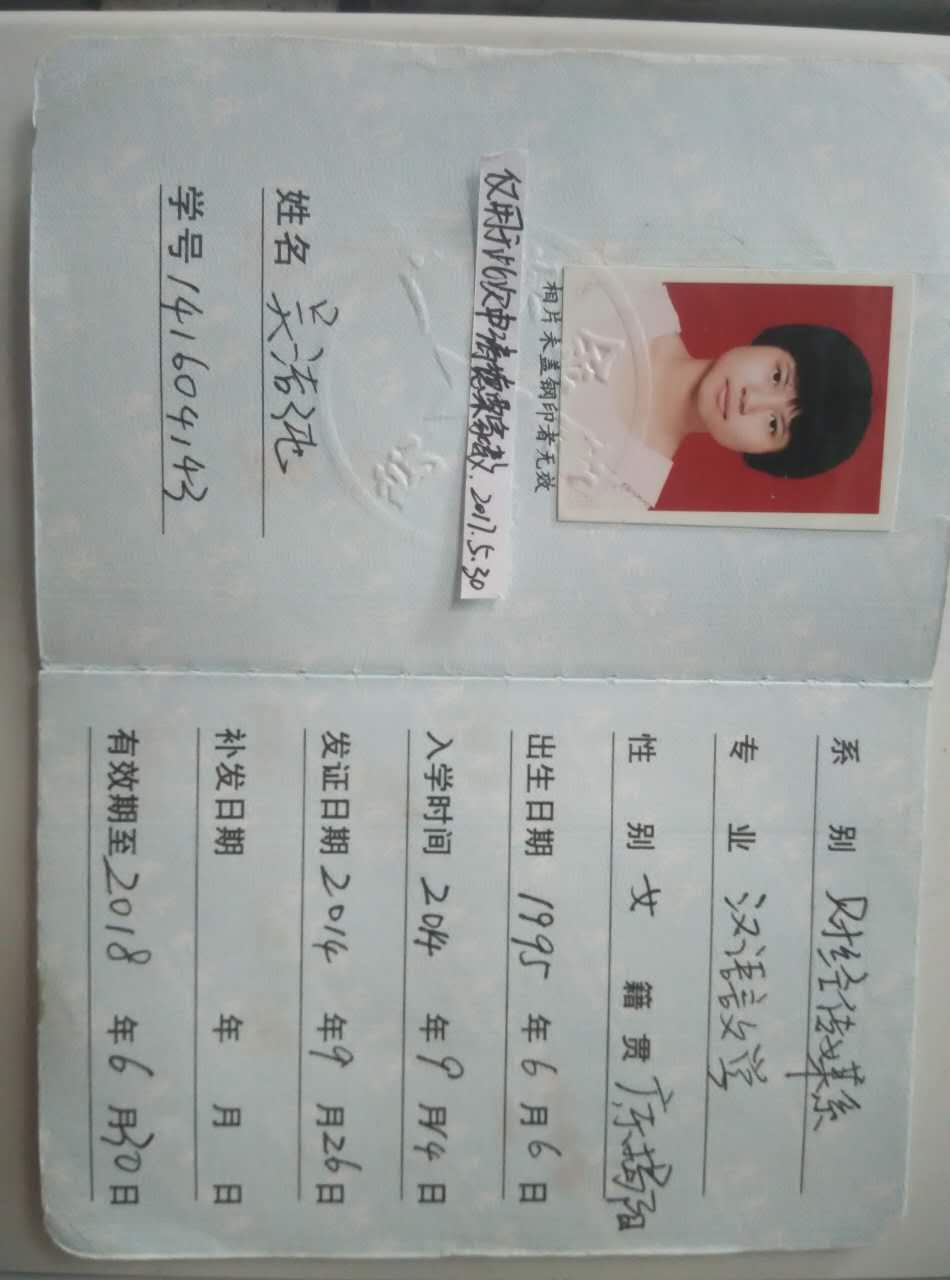 相片未盖钢印者无效
仅用于此次申请德莱家教.2017.5.30
姓名 吴洁
学号 141604143
系别 财经传媒系
专业 汉语言文学
性别 女 籍贯 广东揭阳
出生日期 1995 年 6 月 6 日
入学时间 2014 年 9 月 14 日
发证日期 2014 年 9 月 26 日
补发日期 年 月 日
有效期至 2018 年 6 月 30 日